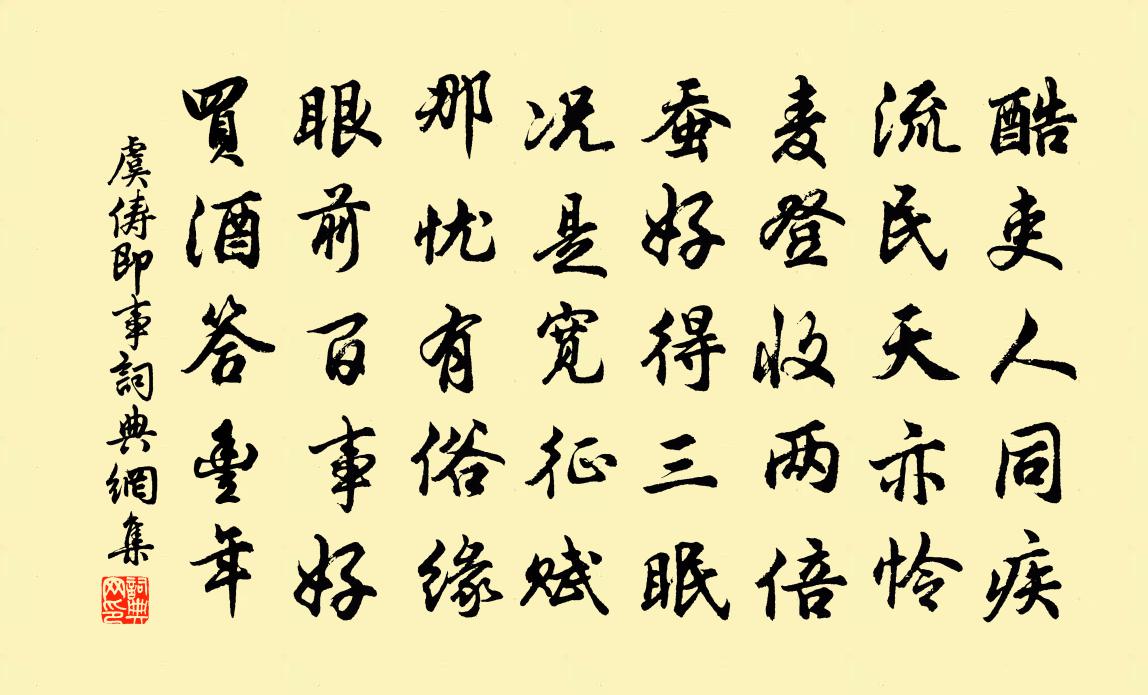 酷吏人同疾
流民天亦怜
麦登收两倍
蚕好得三眠
况是宽征赋
那忧有俗缘
眼前百事好
買酒答豊年
虞俦即事詞典網集
詞典網印